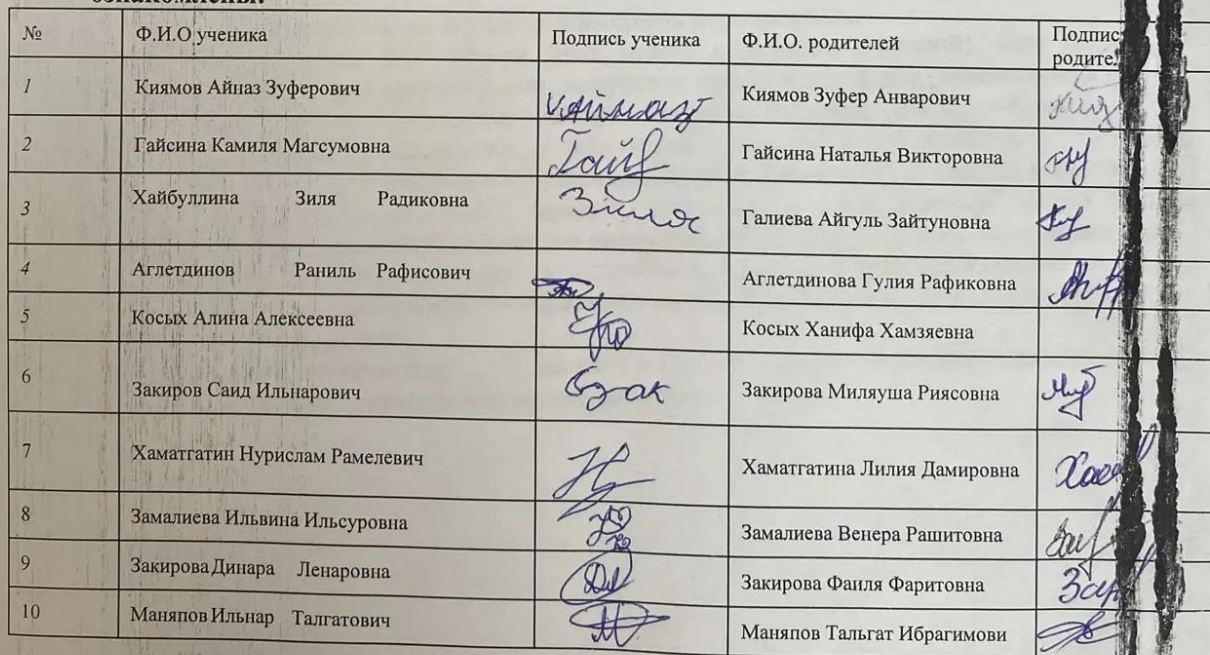 ознакомлены.
№ Ф.И.О ученика Подпись ученика Ф.И.О. родителей Подпис
родите
1 Киямов Айназ Зуферович Киямов Зуфер Анварович
2 Гайсина Камиля Магсумовна Гайсина Наталья Викторовна
3 Хайбуллина Зиля Радиковна Зиля Галиева Айгуль Зайтуновна
4 Аглетдинов Раниль Рафисович Аглетдинова Гулия Рафиковна
5 Косых Алина Алексеевна Косых Ханифа Хамзяевна
6 Закиров Саид Ильнарович Закирова Миляуша Риясовна
7 Хаматгатин Нурислам Рамелевич Хаматгатина Лилия Дамировна
8 Замалиева Ильвина Ильсуровна Замалиева Венера Рашитовна
9 Закирова Динара Ленаровна Закирова Фаиля Фаритовна
10 Маняпов Ильнар Талгатович Маняпов Тальгат Ибрагимови